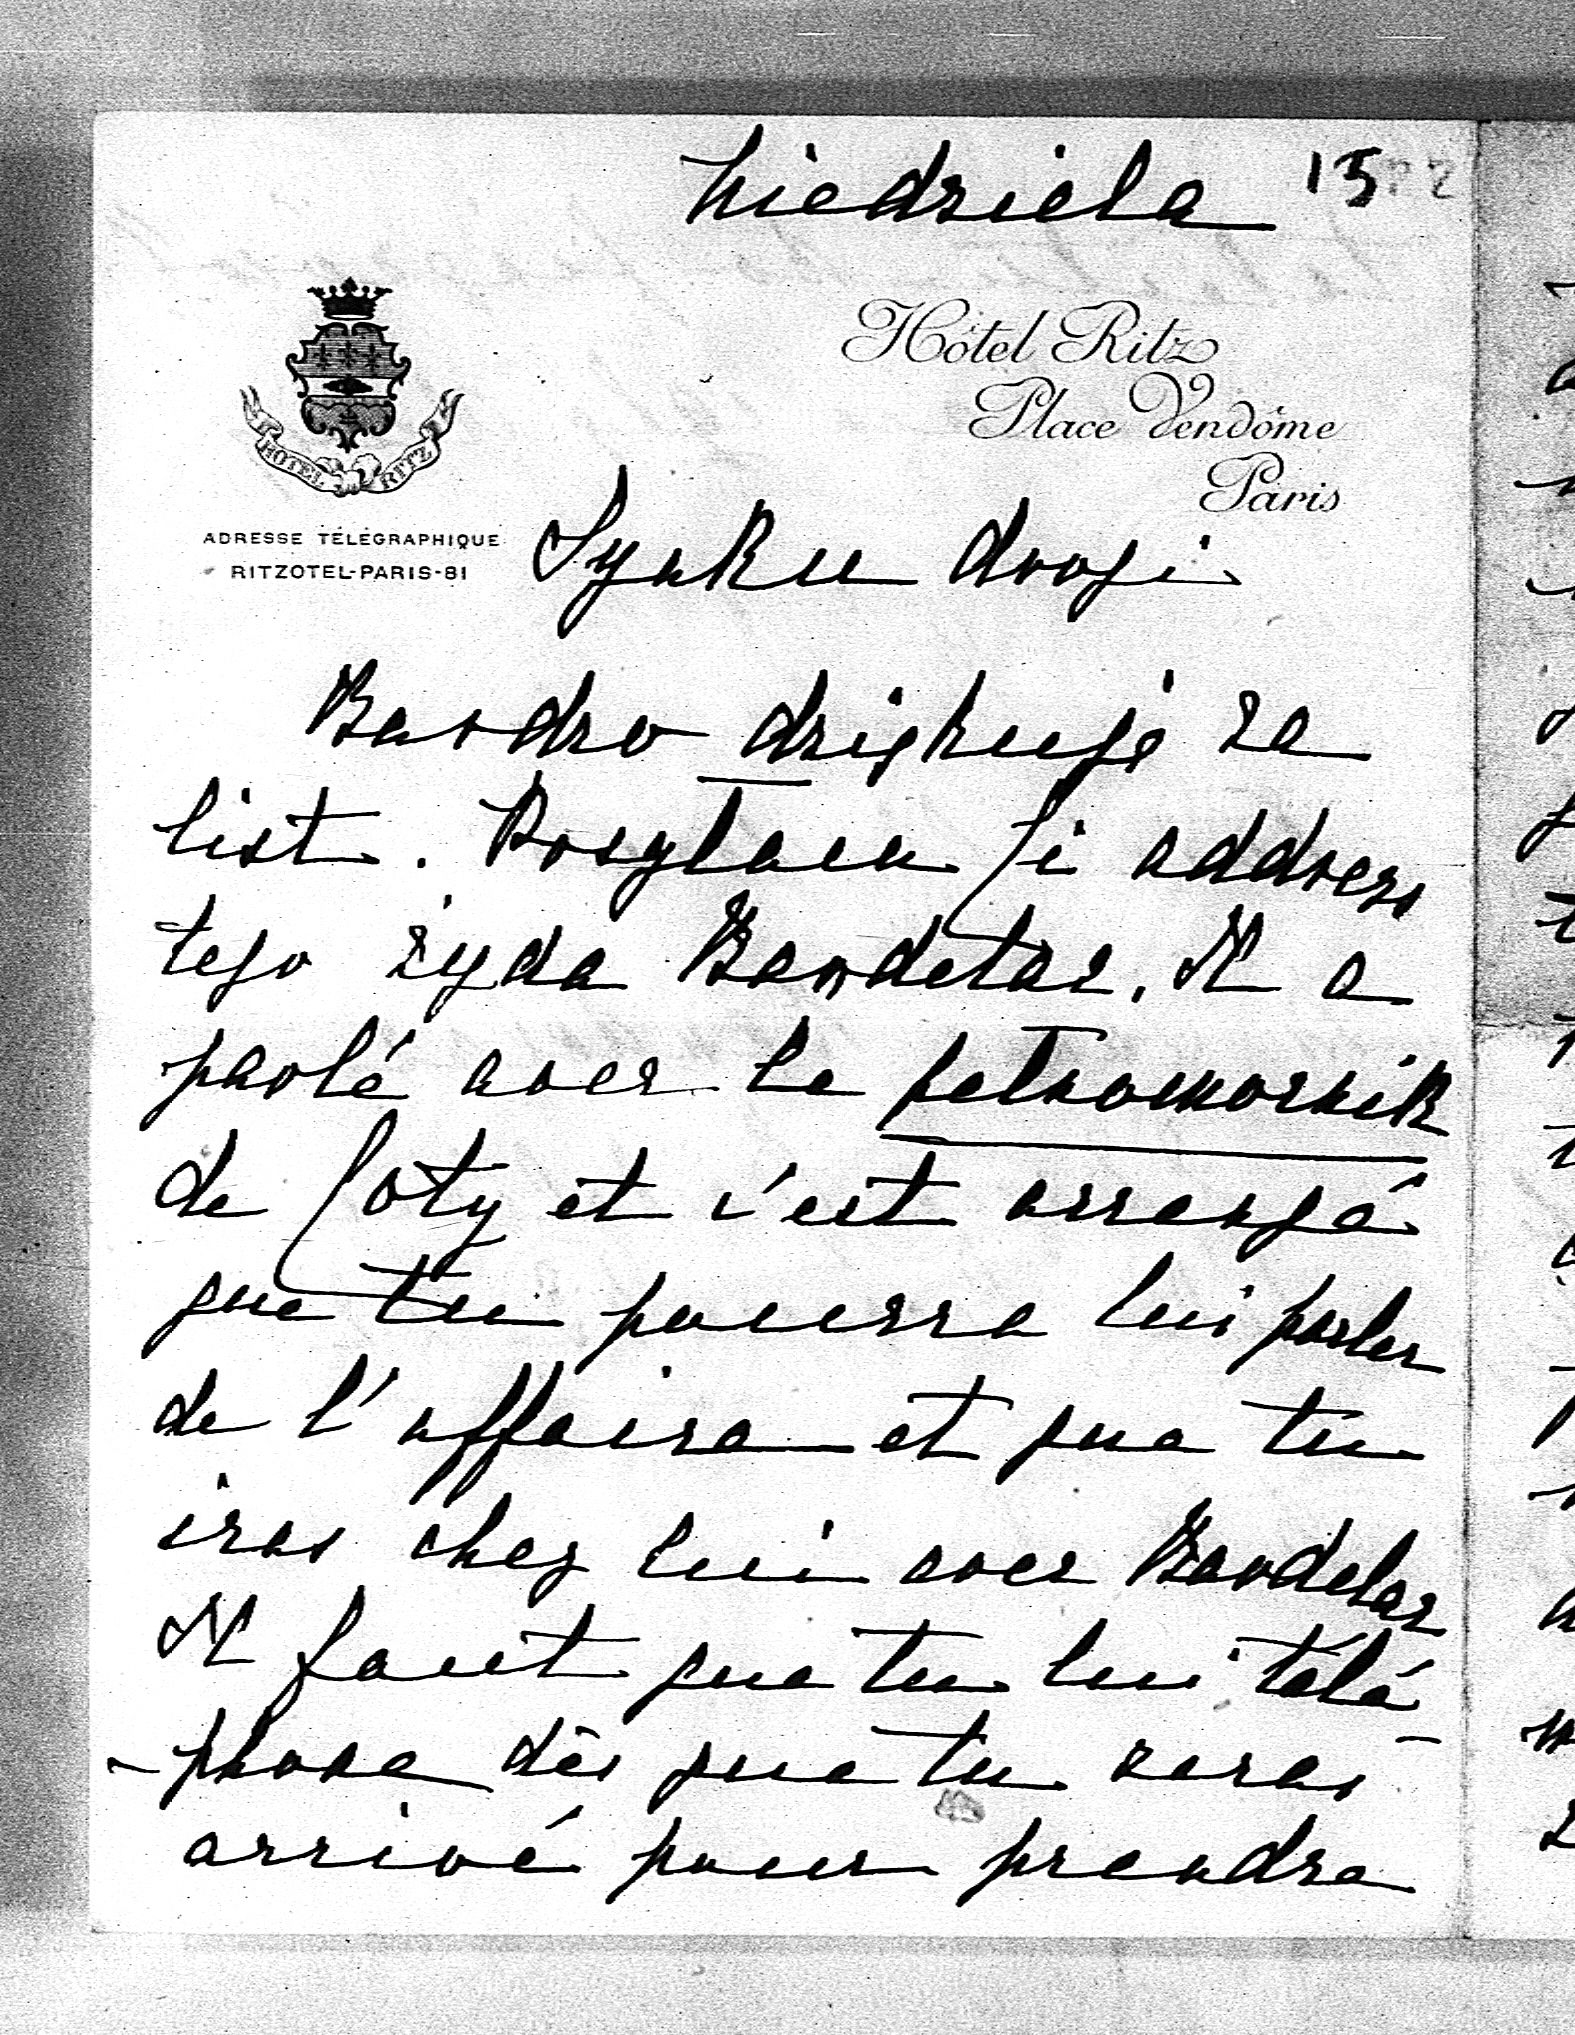 niedziela 15
Hôtel Ritz
Place Vendôme
Paris
HOTEL RITZ
ADRESSE TÉLÉGRAPHIQUE
RITZOTEL-PARIS-81
Synku drogi
Bardzo dziękuję za
list. Posyłam Ci address
tego żyda Bardelas. Il a
parlé avec le pełnomocnik
de Coty et c'est arrangé
que tu pourra lui parler
de l'affaire et que tu
iras chez lui avec Bardelas
Il faut que tu lui télé-
-phone dès que tu seras
arrivé pour prendre